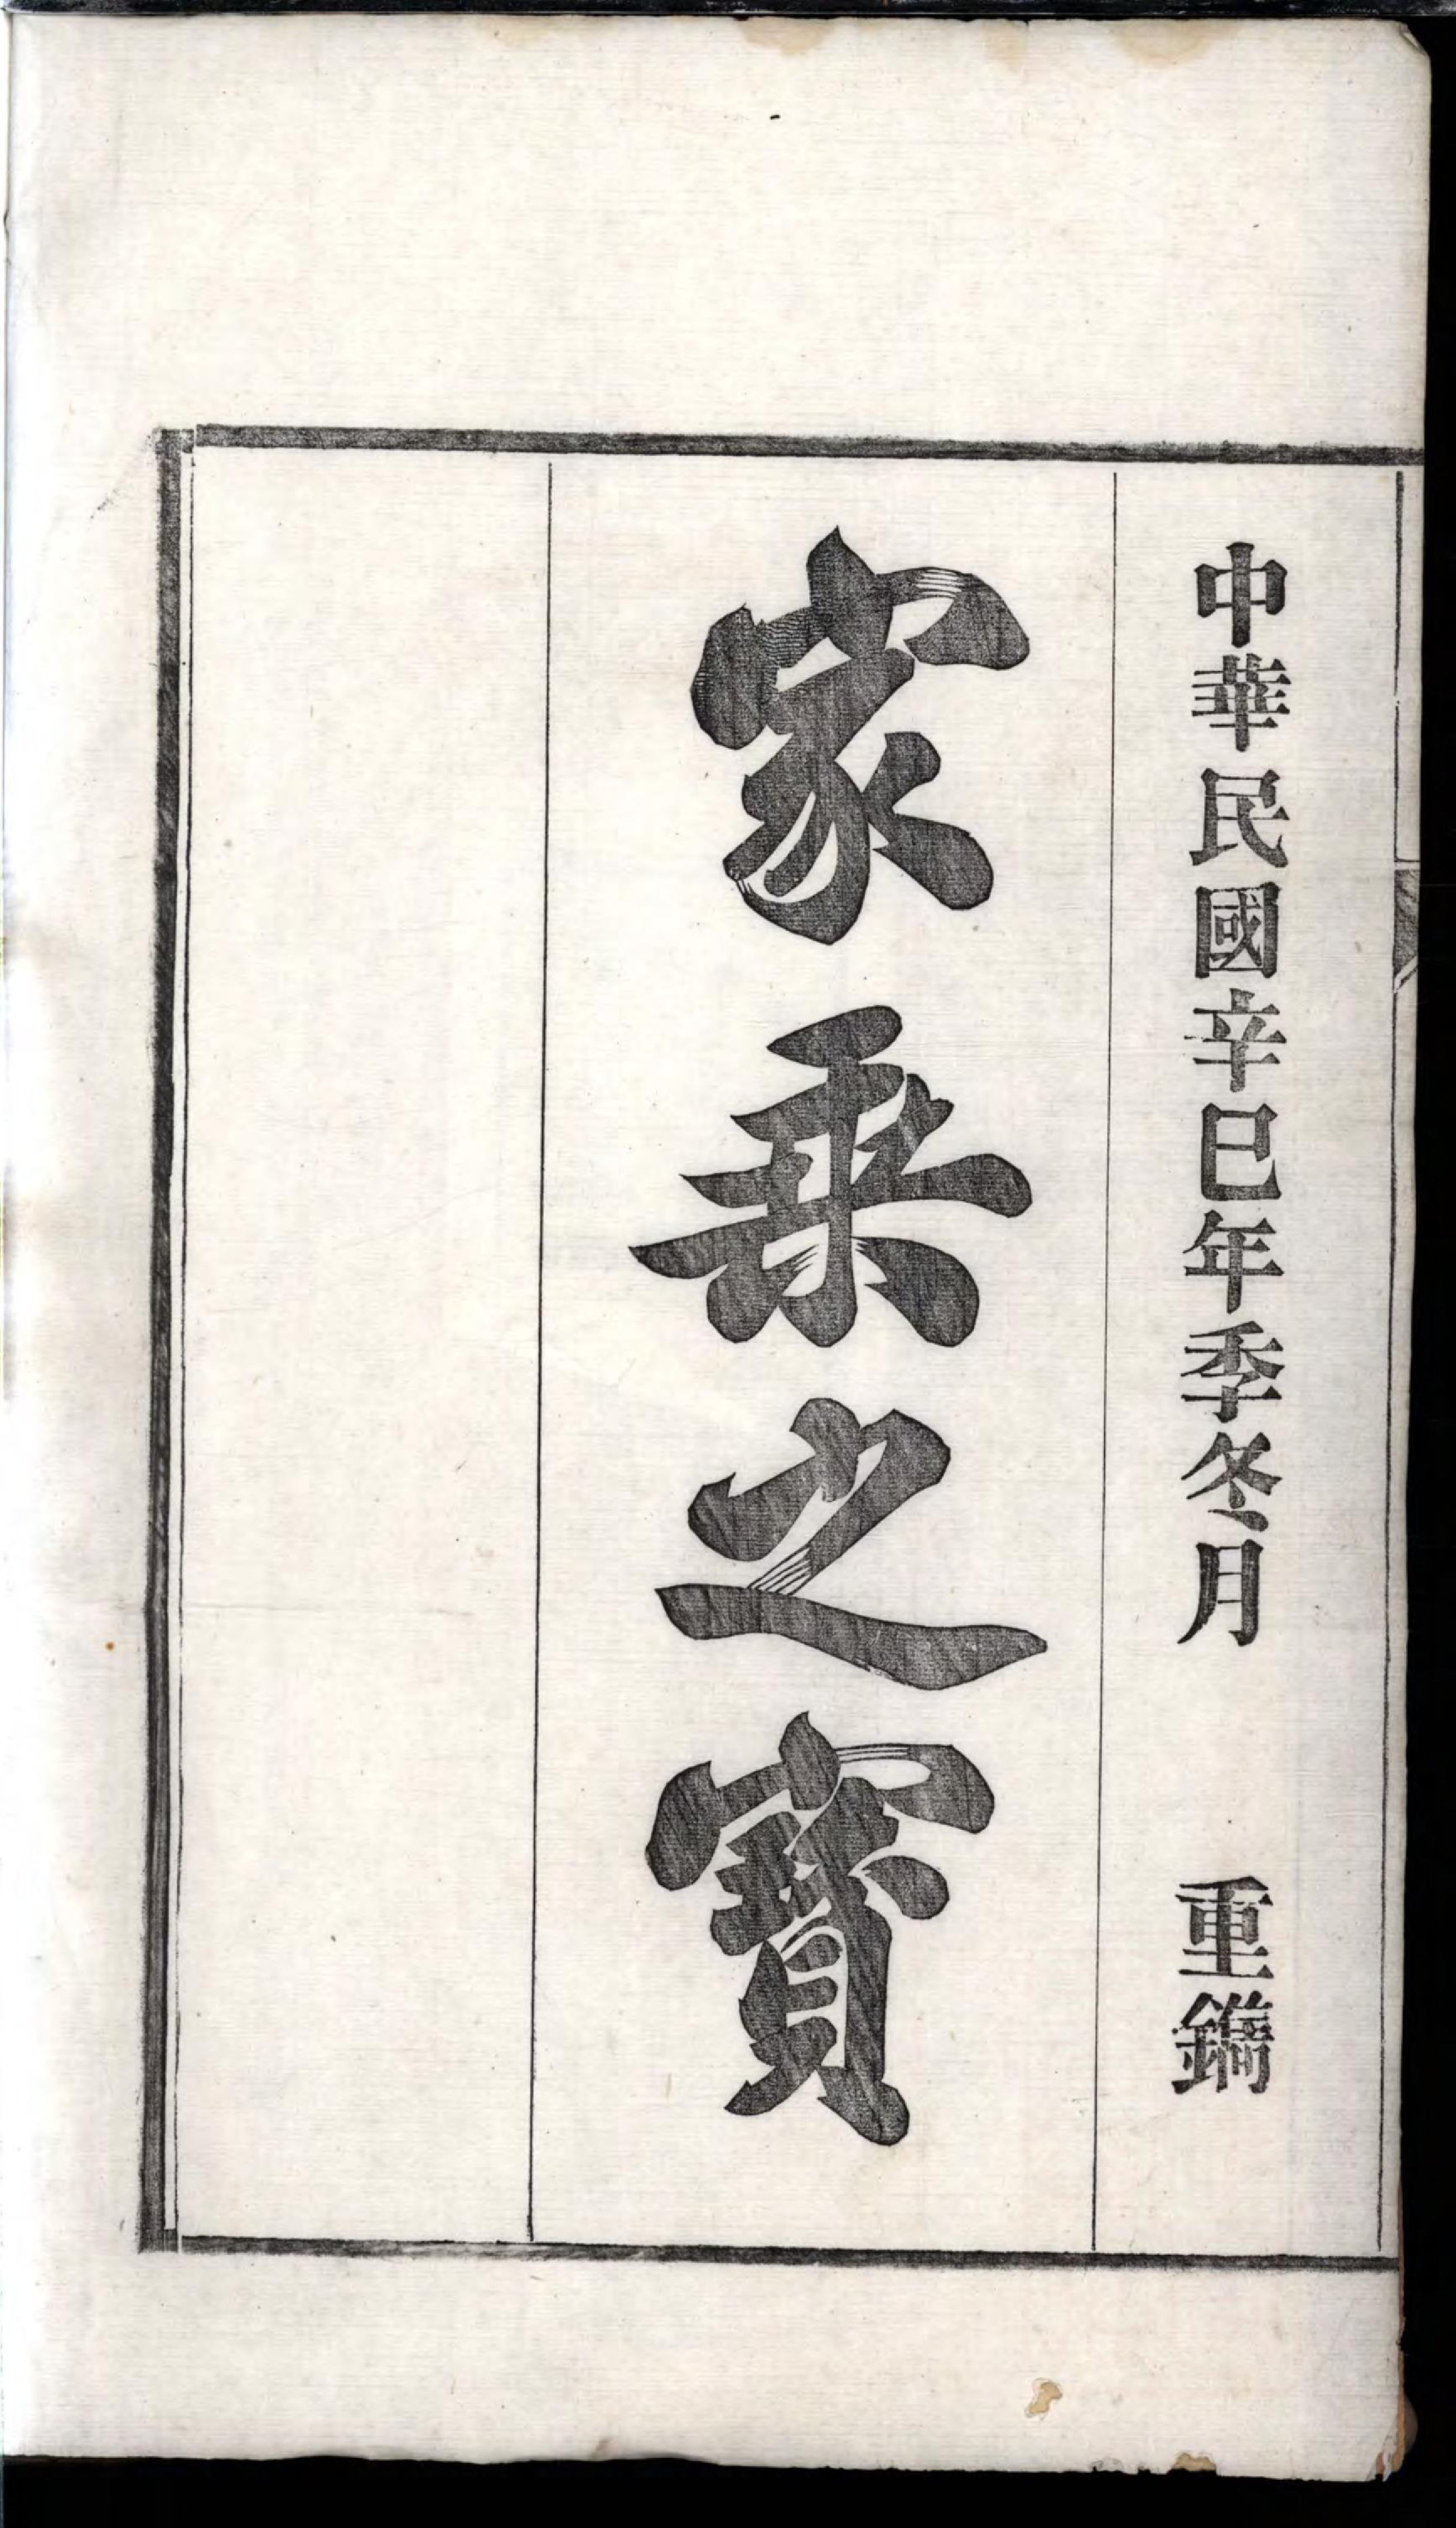 中華民國辛巳年季冬月 重鐫
家乗之寶